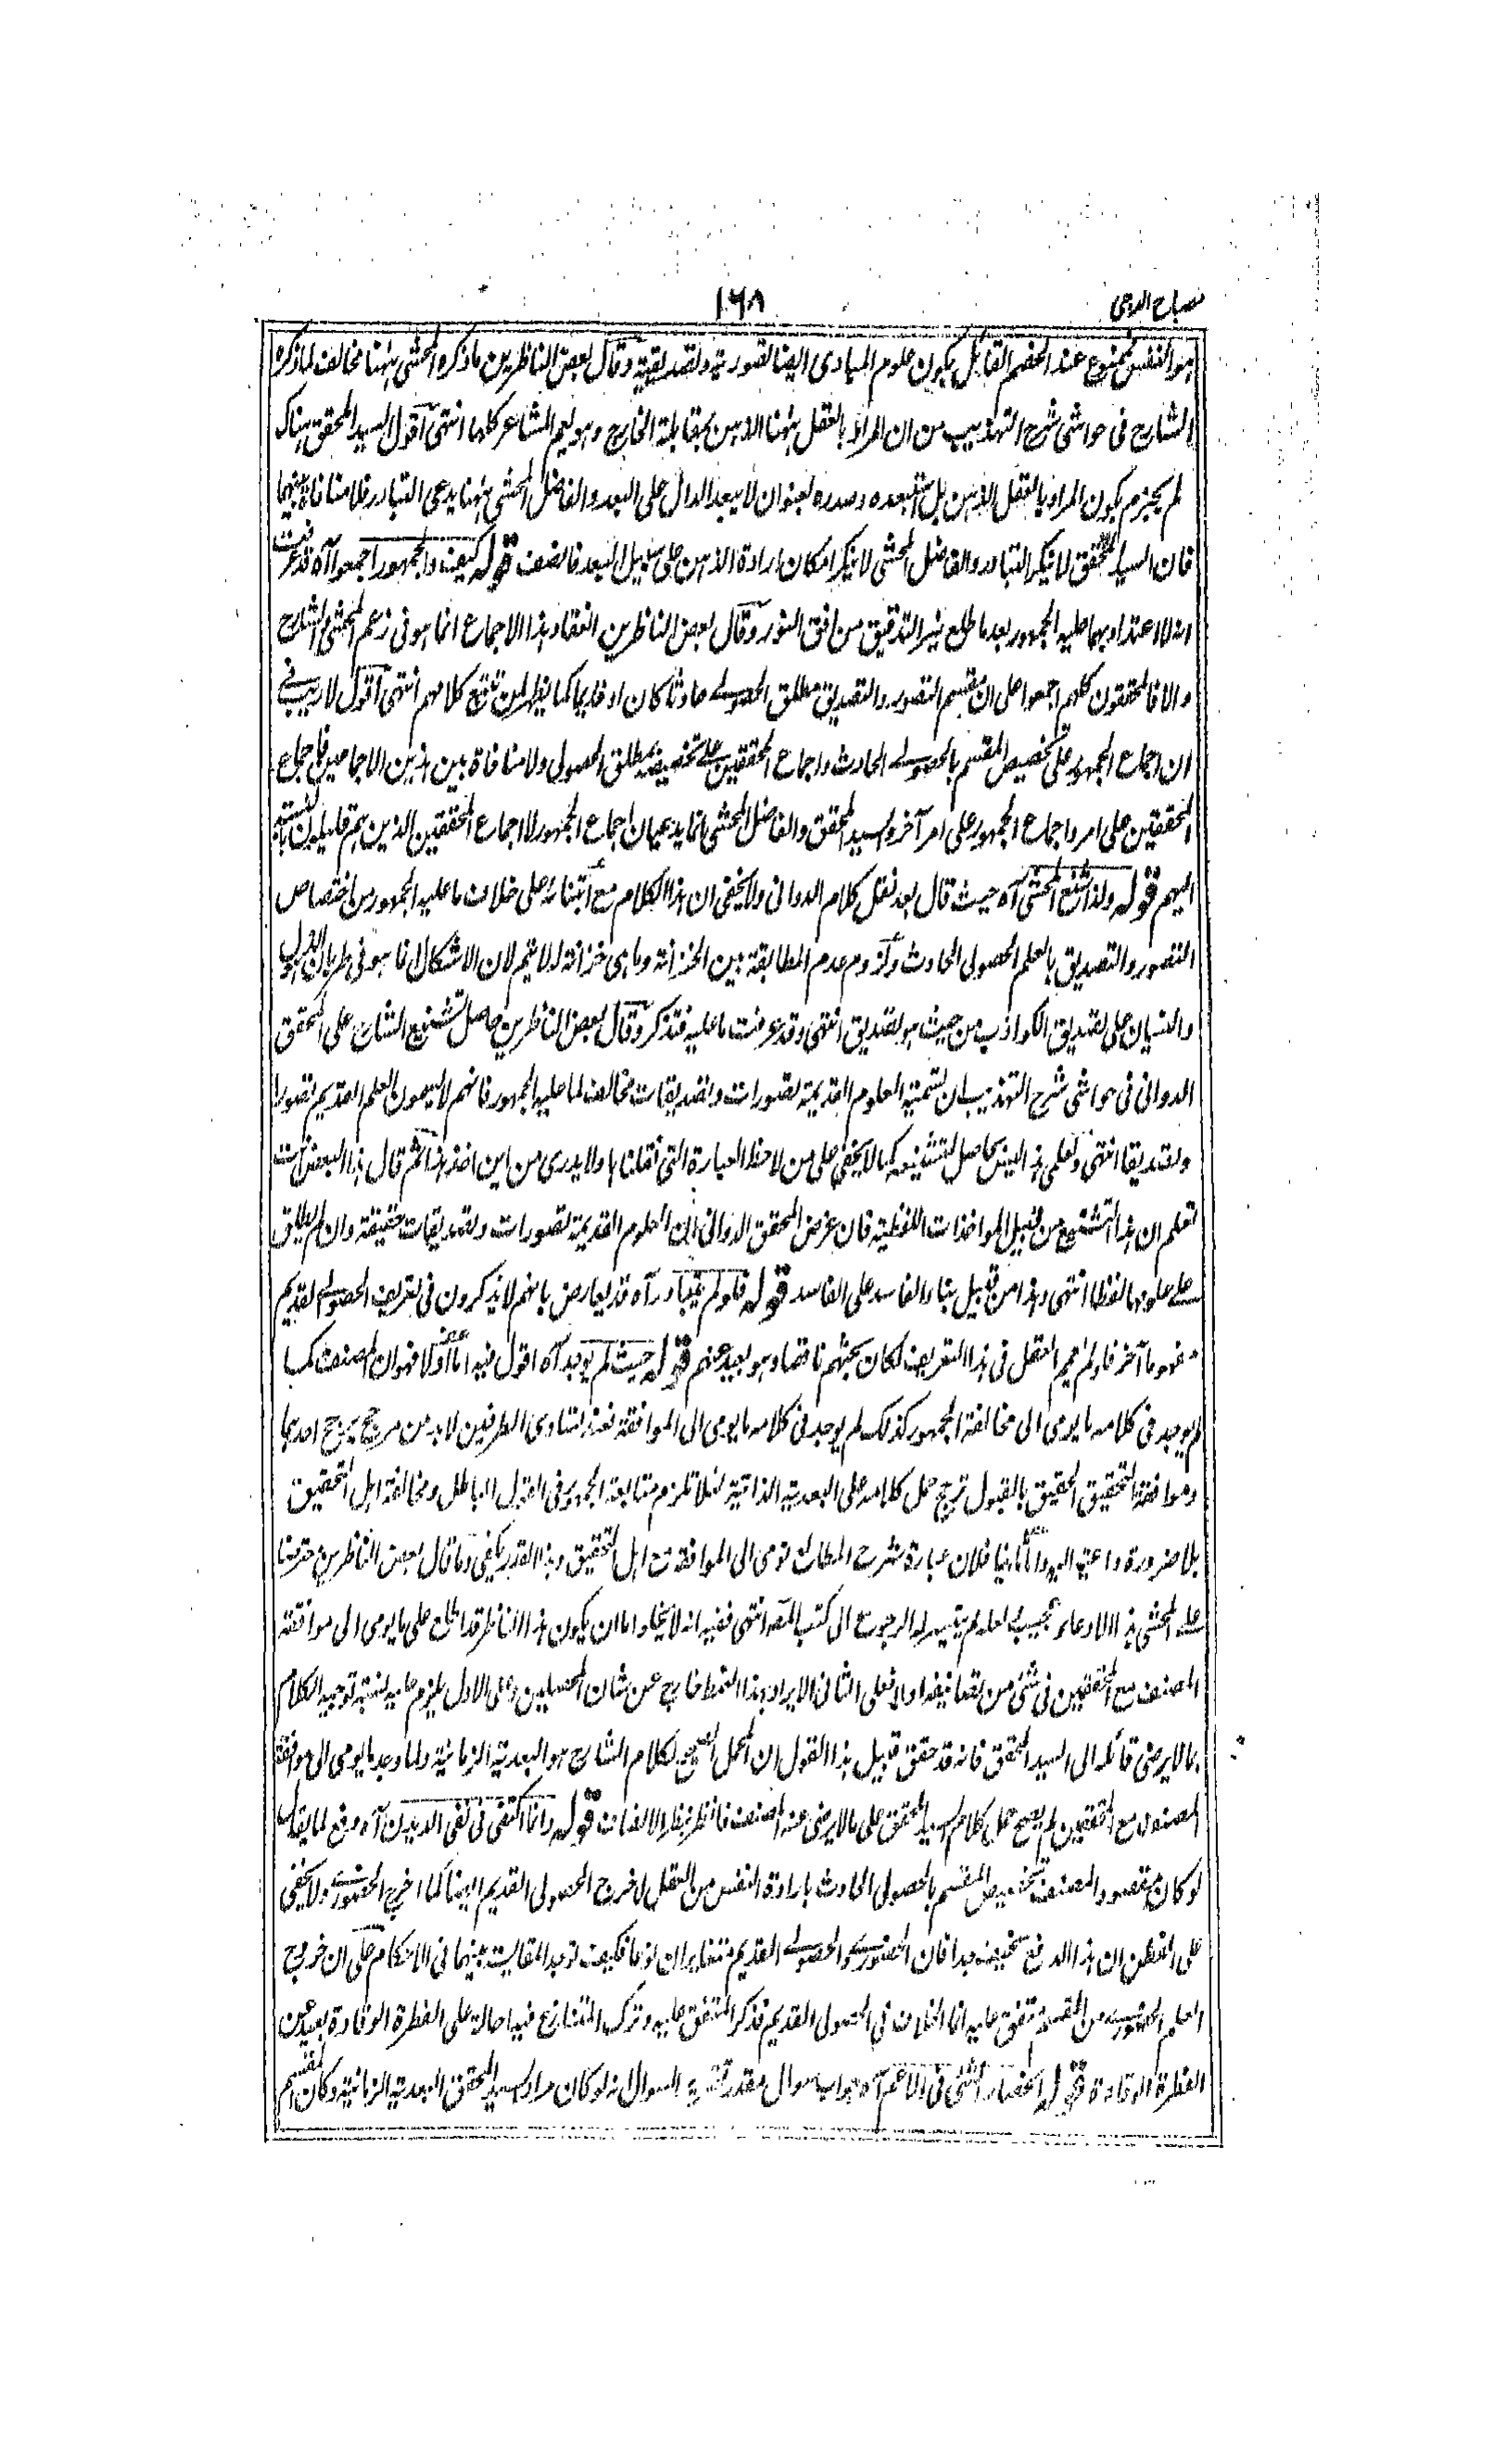 مصباح الدجى
١٦٨
هو النفس ممنوع عند الخصم القائل بكون علوم المبادى ايضا تصورية وتصديقية وقال بعض الناظرين ما ذكره المحشى ههنا مخالف لما ذكره
الشارح فى حواشى شرح التهذيب من ان المراد بالعقل ههنا الذهن بمقابلة الخارج وهو يعم المشاعر كلها انتهى اقول السيد المحقق هناك
لم يجزم بكون المراد بالعقل الذهن بل استبعده وصدره بعنوان لا يبعد الدال على البعد والفاضل المحشى ههنا يدعى التبادر فلا منافاة بينهما
فان السيد المحقق لا ينكر التبادر والفاضل المحشى لا ينكر امكان ارادة الذهن على سبيل البعد فانصف قوله كيف والجمهور اجمعوا آه قد عرفت
انه لا اعتداد بما عليه الجمهور بعد ما طلع نير التدقيق من افق النور وقال بعض الناظرين انعقاد هذا الاجماع انما هو فى زعم المحشى والشارح
والا فالمحققون كلهم اجمعوا على ان مقسم التصور والتصديق مطلق الحصولى حادثا كان او قديما كما يظهر لمن تتبع كلامهم انتهى اقول لا ريب فى
ان اجماع الجمهور على تخصيص المقسم بالحصولى الحادث واجماع المحققين على تخصيصه بمطلق الحصولى ولا منافاة بين هذين الاجماعين فاجماع
المحققين على امر واجماع الجمهور على امر آخر والسيد المحقق والفاضل المحشى انما يدعيان اجماع الجمهور لا اجماع المحققين الذين هم قليلون بالنسبة
اليهم قوله ولذا شنع المحشى آه حيث قال بعد نقل كلام الدوانى ولا يخفى ان هذا الكلام مع ابتنائه على خلاف ما عليه الجمهور من اختصاص
التصور والتصديق بالعلم الحصولى الحادث ولزوم عدم المطابقة بين الخزانة وما هى خزانة له لا يتم لان الاشكال انما هو فى طريان الذهول
والنسيان على تصديق الكواذب من حيث هو تصديق انتهى وقد عرفت ما عليه فتذكر وقال بعض الناظرين حاصل تشنيع الشارح على المحقق
الدوانى فى حواشى شرح التهذيب ان تسمية العلوم القديمة تصورات وتصديقات مخالف لما عليه الجمهور فانهم لا يسمون العلم القديم تصورا
وتصديقا انتهى ولعلمى هذا ليس بحاصل لتشنيعه كما لا يخفى على من لاحظ العبارة التى نقلناها ولا يدرى من اين اخذ هذا ثم قال هذا البعض انت
تعلم ان هذا التشنيع من قبيل المواخذات اللفظية فان غرض المحقق الدوانى ان العلوم القديمة تصورات وتصديقات حقيقة وان لم يطلق
على علومها لفظا انتهى وهذا من قبيل بناء الفاسد على الفاسد قوله فلو لم يتبادر آه قد يعارض بانهم لا يذكرون فى تعريف الحصولى القديم
مفهوما آخر فلو لم يعمم العقل فى هذا التعريف لكان بحثهم ناقصا وهو بعيد عنهم قوله حيث لم يوجد آه اقول فيه اما اولا فهو ان المصنف كما
لم يوجد فى كلامه ما يومى الى مخالفة الجمهور كذلك لم يوجد فى كلامه ما يومى الى الموافقة فعند تساوى الطرفين لا بد من مرجح يرجح احدهما
وموافقة التحقيق الحقيق بالقبول ترجح حمل كلامه على البعدية الذاتية لئلا تلزم متابعة الجمهور فى القول الباطل ومخالفة اهل التحقيق
بلا ضرورة داعية اليه واما ثانيا فلان عبارة شرح المطالع تومى الى الموافقة مع اهل التحقيق وهذا القدر يكفى وما قال بعض الناظرين معترضا
على المحشى هذا الادعاء عجيب لعله لم يتيسر له الرجوع الى كتب المصنف انتهى ففيه انه لا يخلو اما ان يكون هذا الناظر قد اطلع على ما يومى الى موافقة
المصنف مع المحققين فى شئ من تصانيفه اولا فعلى الثانى الايراد بهذا النمط خارج عن شان المحصلين وعلى الاول يلزم عليه نسبة توجيه الكلام
بما لا يرضى قائله الى السيد المحقق فانه قد حقق قبيل هذا القول ان المحمل الصحيح لكلام الشارح هو البعدية الزمانية ولما وجد ما يومى الى موافقة
المصنف مع المحققين لم يصح حمل كلام السيد المحقق على ما لا يرضى عنه المصنف فانظر بنظر الانصاف قوله وانما اكتفى فى نفى البديهين آه دفع لما يقال
لو كان مقصود المصنف تخصيص المقسم بالحصولى الحادث بارادة النفس من العقل لاخرج الحصولى القديم ايضا كما اخرج الحضورى ولا يخفى
على الفطن ان هذا الدفع سخيف جدا فان الحضورى والحصولى القديم متغايران نوعا فكيف توجد المقايسة بينهما فى الاحكام على ان خروج
العلم الحضورى من المقسم متفق عليه انما الخلاف فى الحصولى القديم فذكر المتفق عليه وترك المتنازع فيه احالة على الفطرة الوقادة بعيد عن
الفطرة الوقادة قوله انحصار الشئ فى الاعم آه جواب سوال مقدر تقرير السوال انه لو كان مراد السيد المحقق البعدية الزمانية وكان المقسم